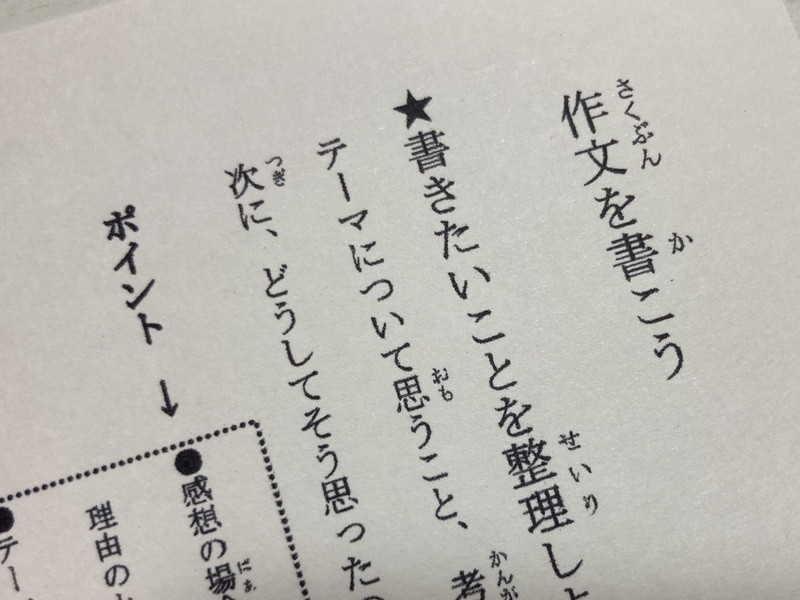 作文を書こう
★書きたいことを整理し
テーマについて思うこと、考
次に、どうしてそう思った
ポイント↓
●感想の場
理由の
●テー